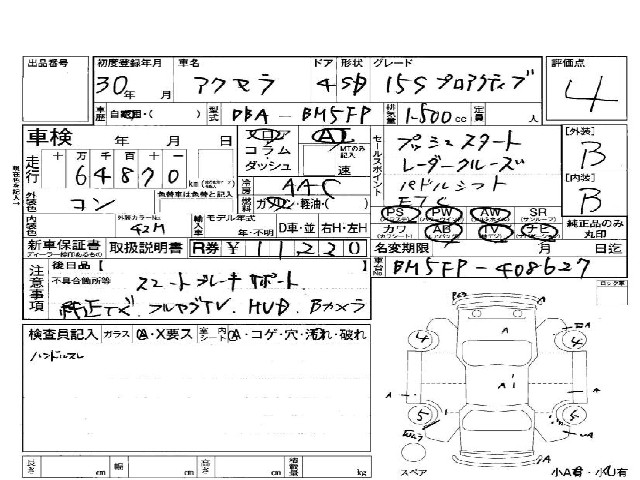 出品番号 初度登録年月 車名 ドア 形状 グレード 評価点
30年 月 アクセラ 4 SD 15S プロアクティブ 4
車歴 自家用・( ) 型式 DBA-BM5FP 排気量 1500cc 定員 人
車検 年 月 日 フロア AT セールスポイント プッシュスタート [外装]
コラム MTのみ記入 レーダークルーズ B
走行 十 万 千 百 十 一 ダッシュ 速 パドルシフト [内装]
64870 km 冷房 AAC ETC B
外装色 コン 色替車は色を記入 燃料 ガソリン・軽油・( ) PS PW AW SR
内装色 外装カラーNo. 42M 輸入車 モデル年式 年・不明 D車・並 右H・左H カワ AB TV ナビ 純正品のみ丸印
新車保証書 取扱説明書 R券 ¥11230 名変期限 月 日迄
注意事項 後日品[ ] BM5FP-408627
不具合箇所等 スマートブレーキサポート ロック車
純正ナビ、フルセグTV、HUD、Bカメラ
検査員記入 ガラス OA・X要ス 室内シート OA・コゲ・穴・汚れ・破れ
ハンドルスレ
A
4 4
A
A
5 5
A
スペア 小A有・小U有
長さ cm 幅 cm 高さ cm 積載量 kg